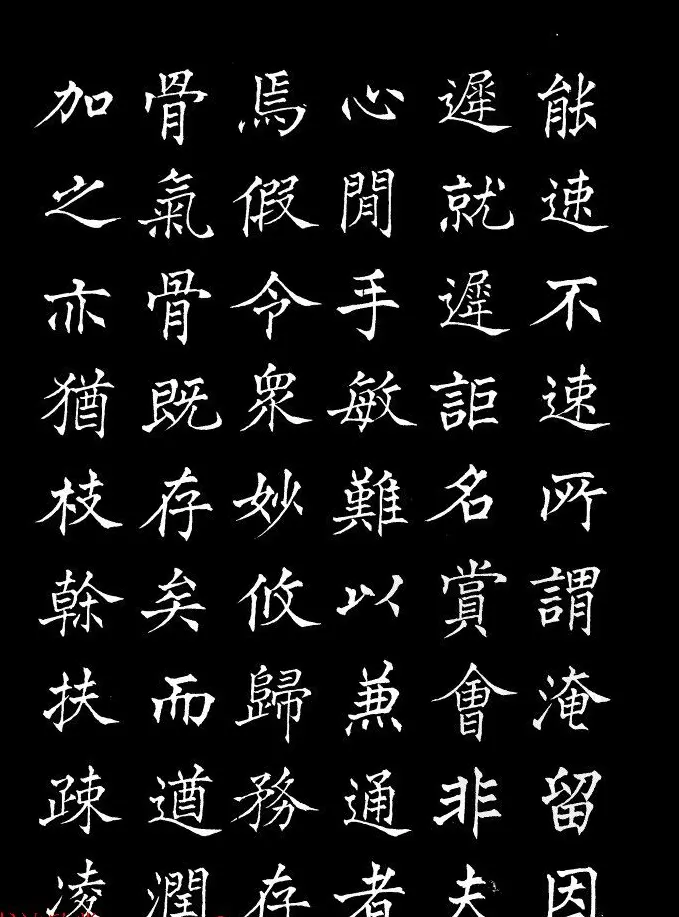 能速不速所謂淹留因
遲就遲詎名賞會非夫
心閒手敏難以兼通者
焉假令眾妙攸歸務存
骨氣骨既存矣而遒潤
加之亦猶枝幹扶疎凌